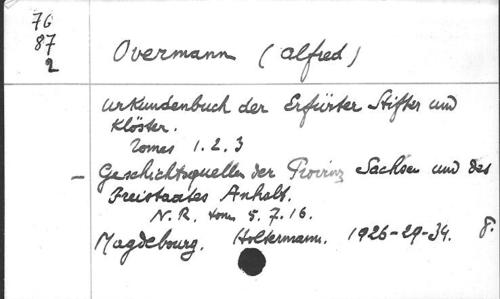 76
87
2
Overmann (Alfred)
Urkundenbuch der Erfürter Stifter und
Klöster.
Tomes 1. 2. 3
- Geschichtsquellen der Provinz Sachsen und des
Freistaates Anhalt.
N. R. tom 5. 7. 16.
Magdebourg. Holtermann. 1926-29-34. 8.